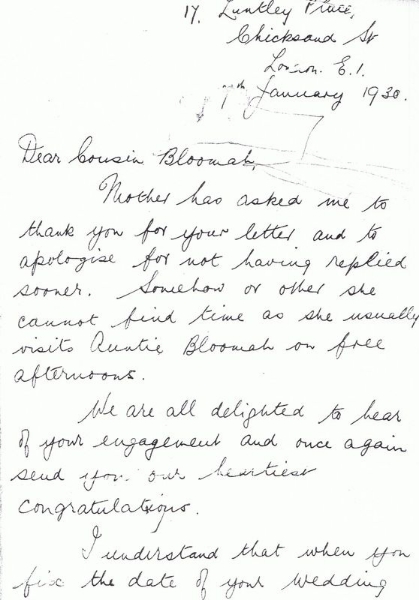 17. Luntley Place,
Chicksand St
London. E.1.
7th January 1930.
Dear Cousin Bloomah,
Mother has asked me to
thank you for your letter and to
apologise for not having replied
sooner. Somehow or other she
cannot find time as she usually
visits Auntie Bloomah on free
afternoons.
We are all delighted to hear
of your engagement and once again
send you our heartiest
congratulations.
I understand that when you
fix the date of your wedding